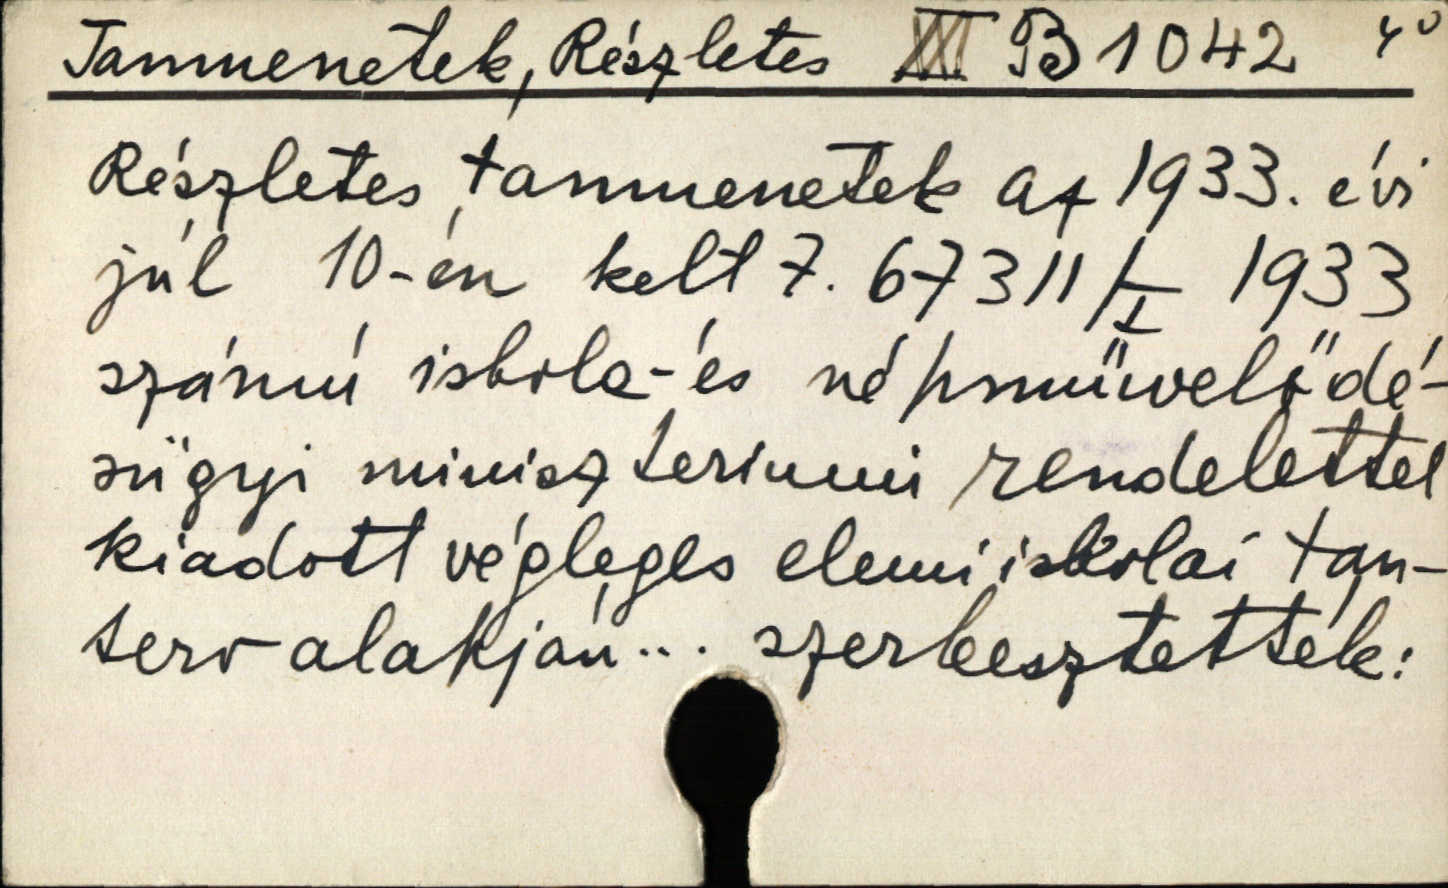 Tanmenetek, Részletes III B 1042 4°
Részletes tanmenetek az 1933. évi
júl 10-én kelt 7. 67311/I 1933
számú iskola-és népművelődé-
sügyi miniszteriumi rendelettel
kiadott végleges elemi iskolai tan-
terv alakján... szerkesztették: